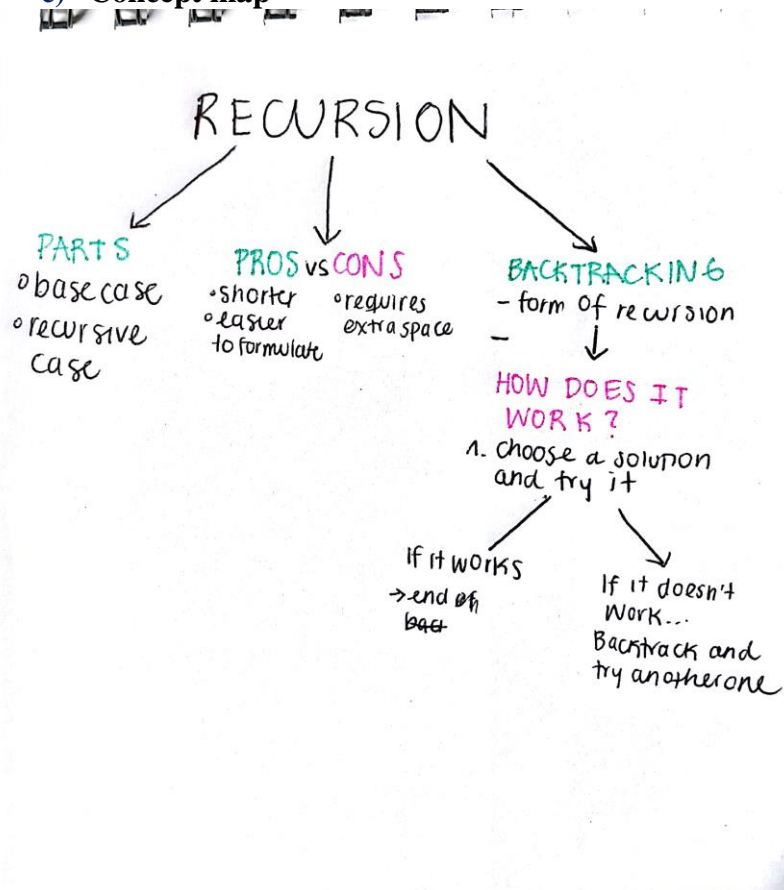 c) Concept map
RECURSION
PARTS
base case
recursive
case
PROS vs CONS
shorter
easier
to formulate
requires
extra space
BACKTRACKING
- form of recursion
-
HOW DOES IT
WORK?
1. choose a solution
and try it
If it works
→ end
If it doesn't
work...
Backtrack and
try another one